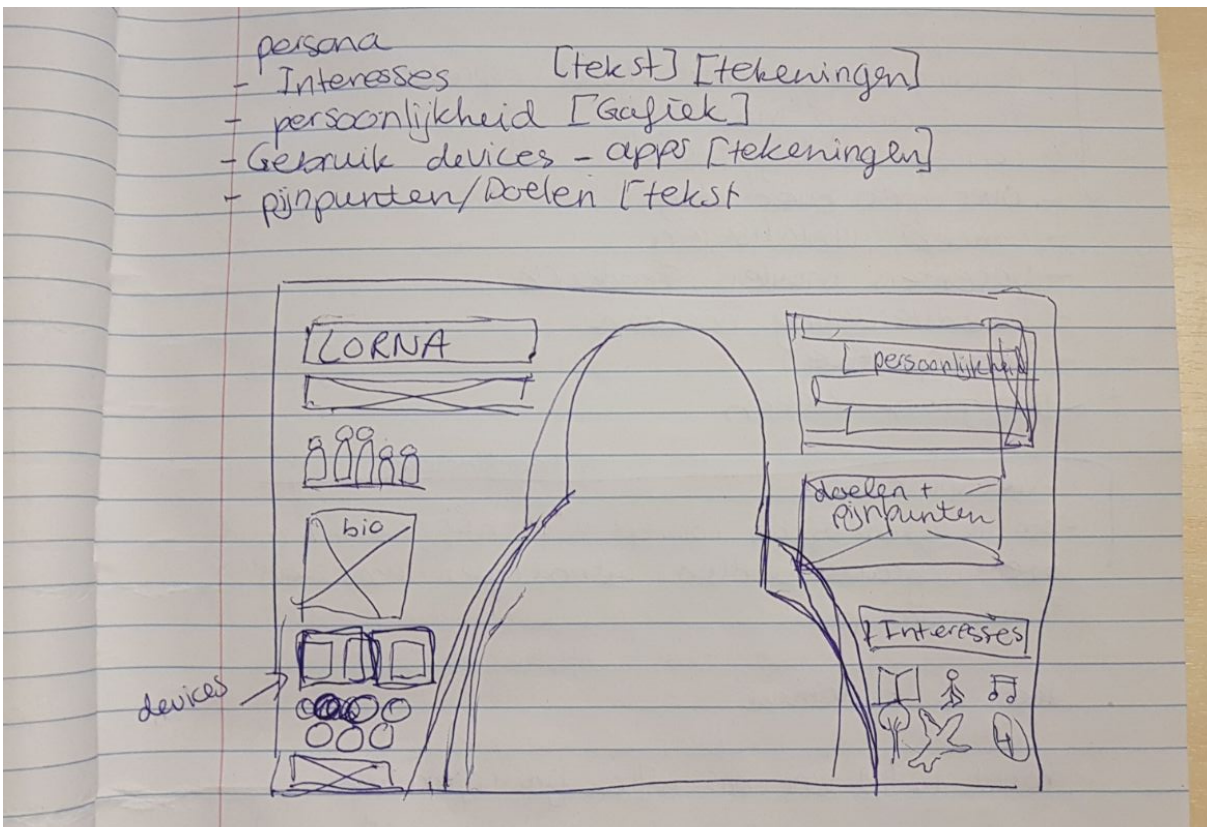 persona
- Interesses [tekst] [tekeningen]
- persoonlijkheid [Gafiek]
- Gebruik devices - apps [tekeningen]
- pijnpunten/Doelen [tekst
LORNA
persoonlijkheid
bio
doelen +
pijnpunten
Interesses
devices